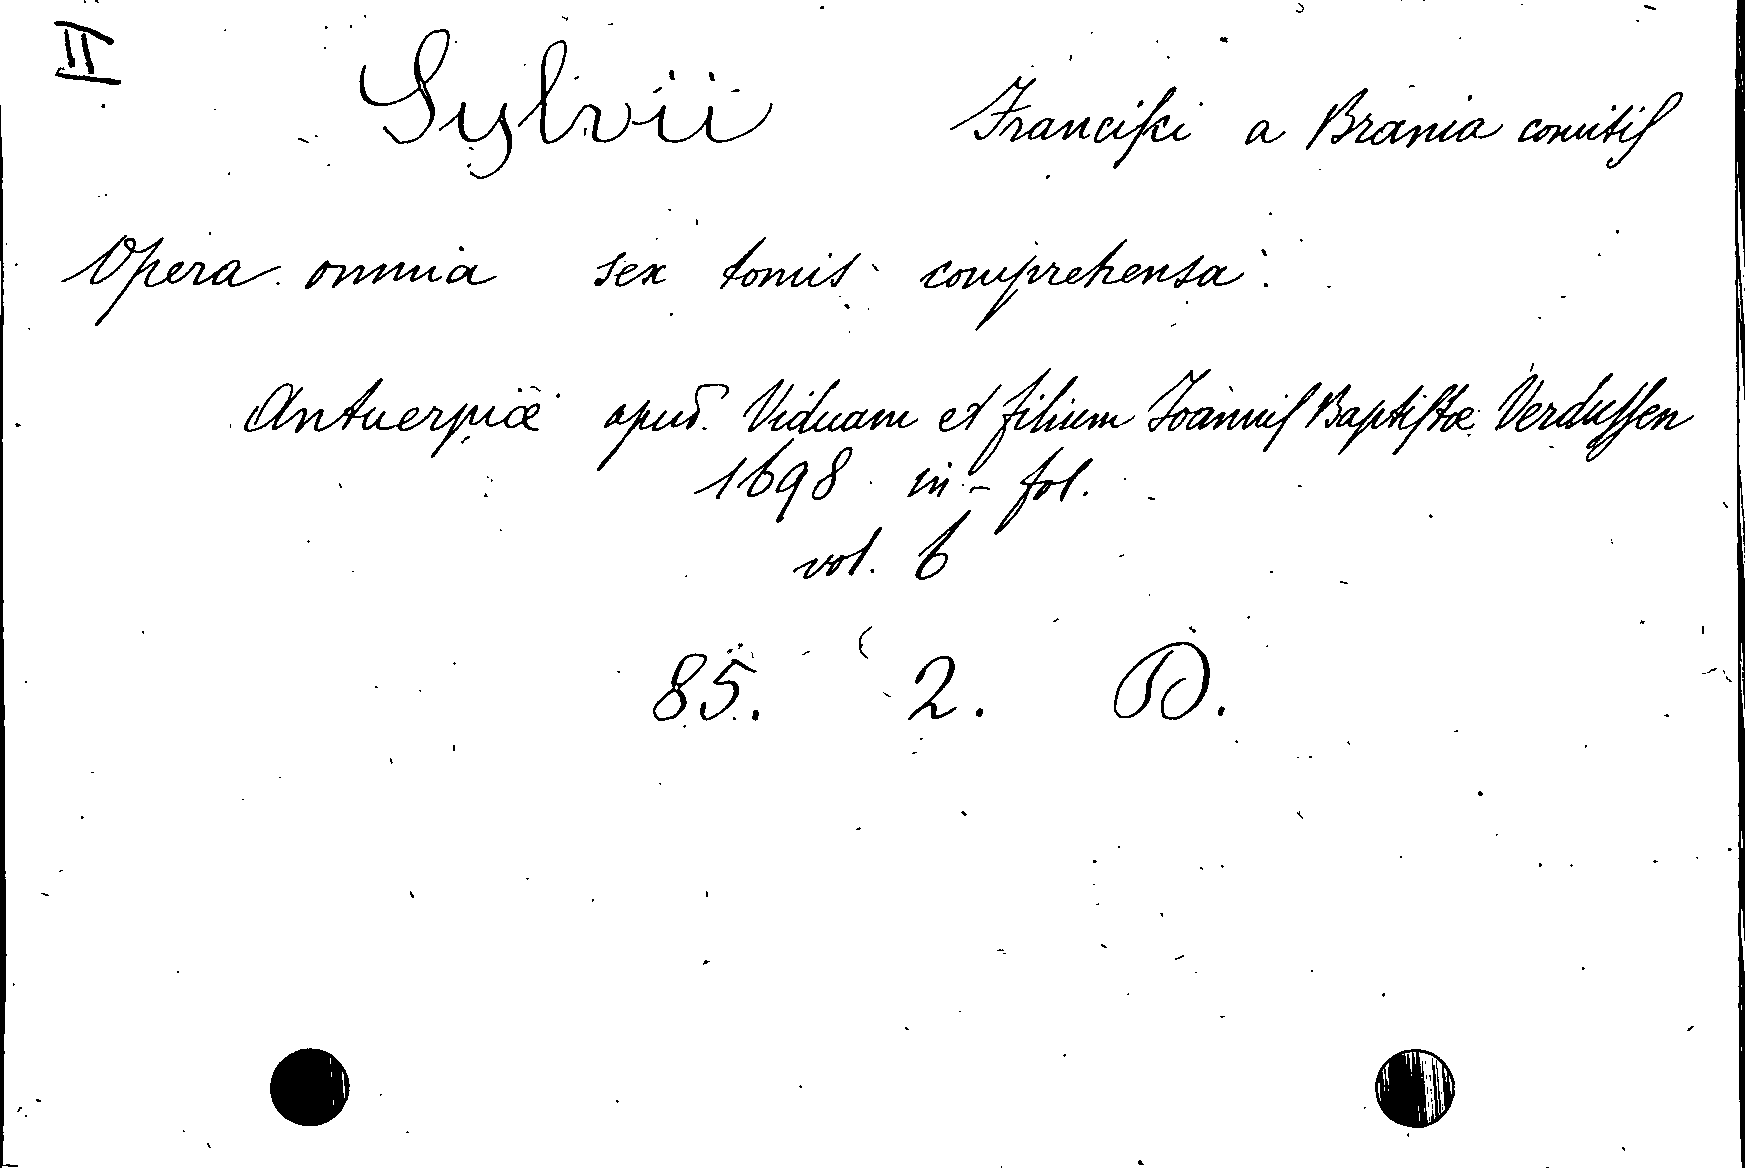 II
Sylvii Franciſci a Brania comitiſ
Opera omnia sex tomis comprehensa.
Antuerpiæ apud. Viduam et filium Joanniſ Baptiſtæ Verduſſen
1698 in-fol.
vol. 6
85. 2. D.